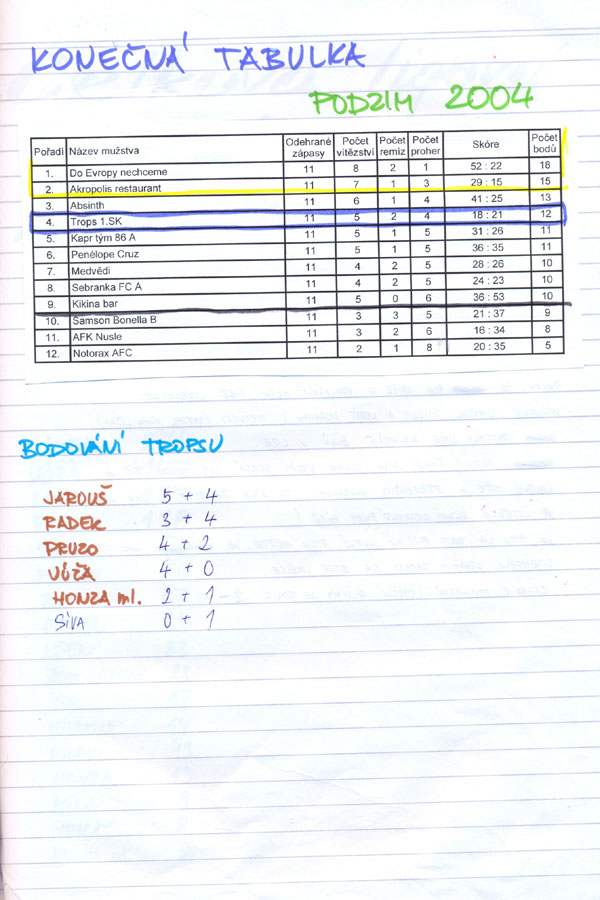 KONEČNÁ TABULKA
PODZIM 2004
Pořadí Název mužstva Odehrané zápasy Počet vítězství Počet remíz Počet proher Skóre Počet bodů
1. Do Evropy nechceme 11 8 2 1 52 : 22 18
2. Akropolis restaurant 11 7 1 3 29 : 15 15
3. Absinth 11 6 1 4 41 : 25 13
4. Trops 1.SK 11 5 2 4 18 : 21 12
5. Kapr tým 86 A 11 5 1 5 31 : 26 11
6. Penélope Cruz 11 5 1 5 36 : 35 11
7. Medvědi 11 4 2 5 28 : 26 10
8. Sebranka FC A 11 4 2 5 24 : 23 10
9. Kikina bar 11 5 0 6 36 : 53 10
10. Samson Bonella B 11 3 3 5 21 : 37 9
11. AFK Nusle 11 3 2 6 16 : 34 8
12. Notorax AFC 11 2 1 8 20 : 35 5
BODOVÁNÍ TROPSU
JAROUŠ 5 + 4
RADEK 3 + 4
PRUZO 4 + 2
VÓŽA 4 + 0
HONZA ml. 2 + 1
SÍVA 0 + 1